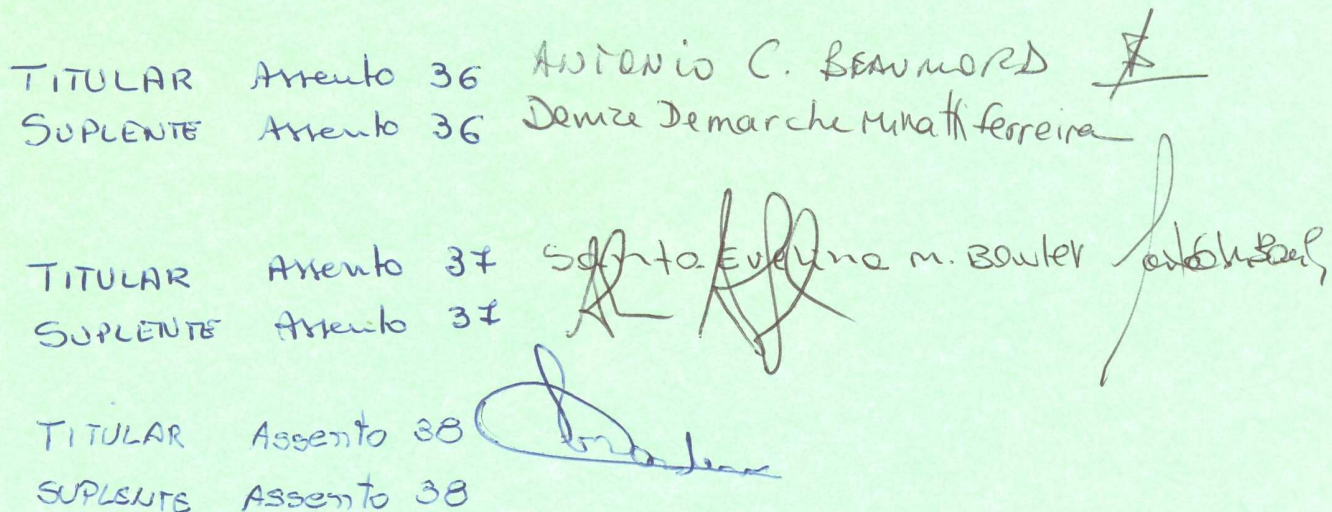 TITULAR Assento 36 ANTONIO C. BEAUMORD
SUPLENTE Assento 36 Denize Demarche Minatti Ferreira
TITULAR Assento 37 M. Bauler
SUPLENTE Assento 37
TITULAR Assento 38
SUPLENTE Assento 38